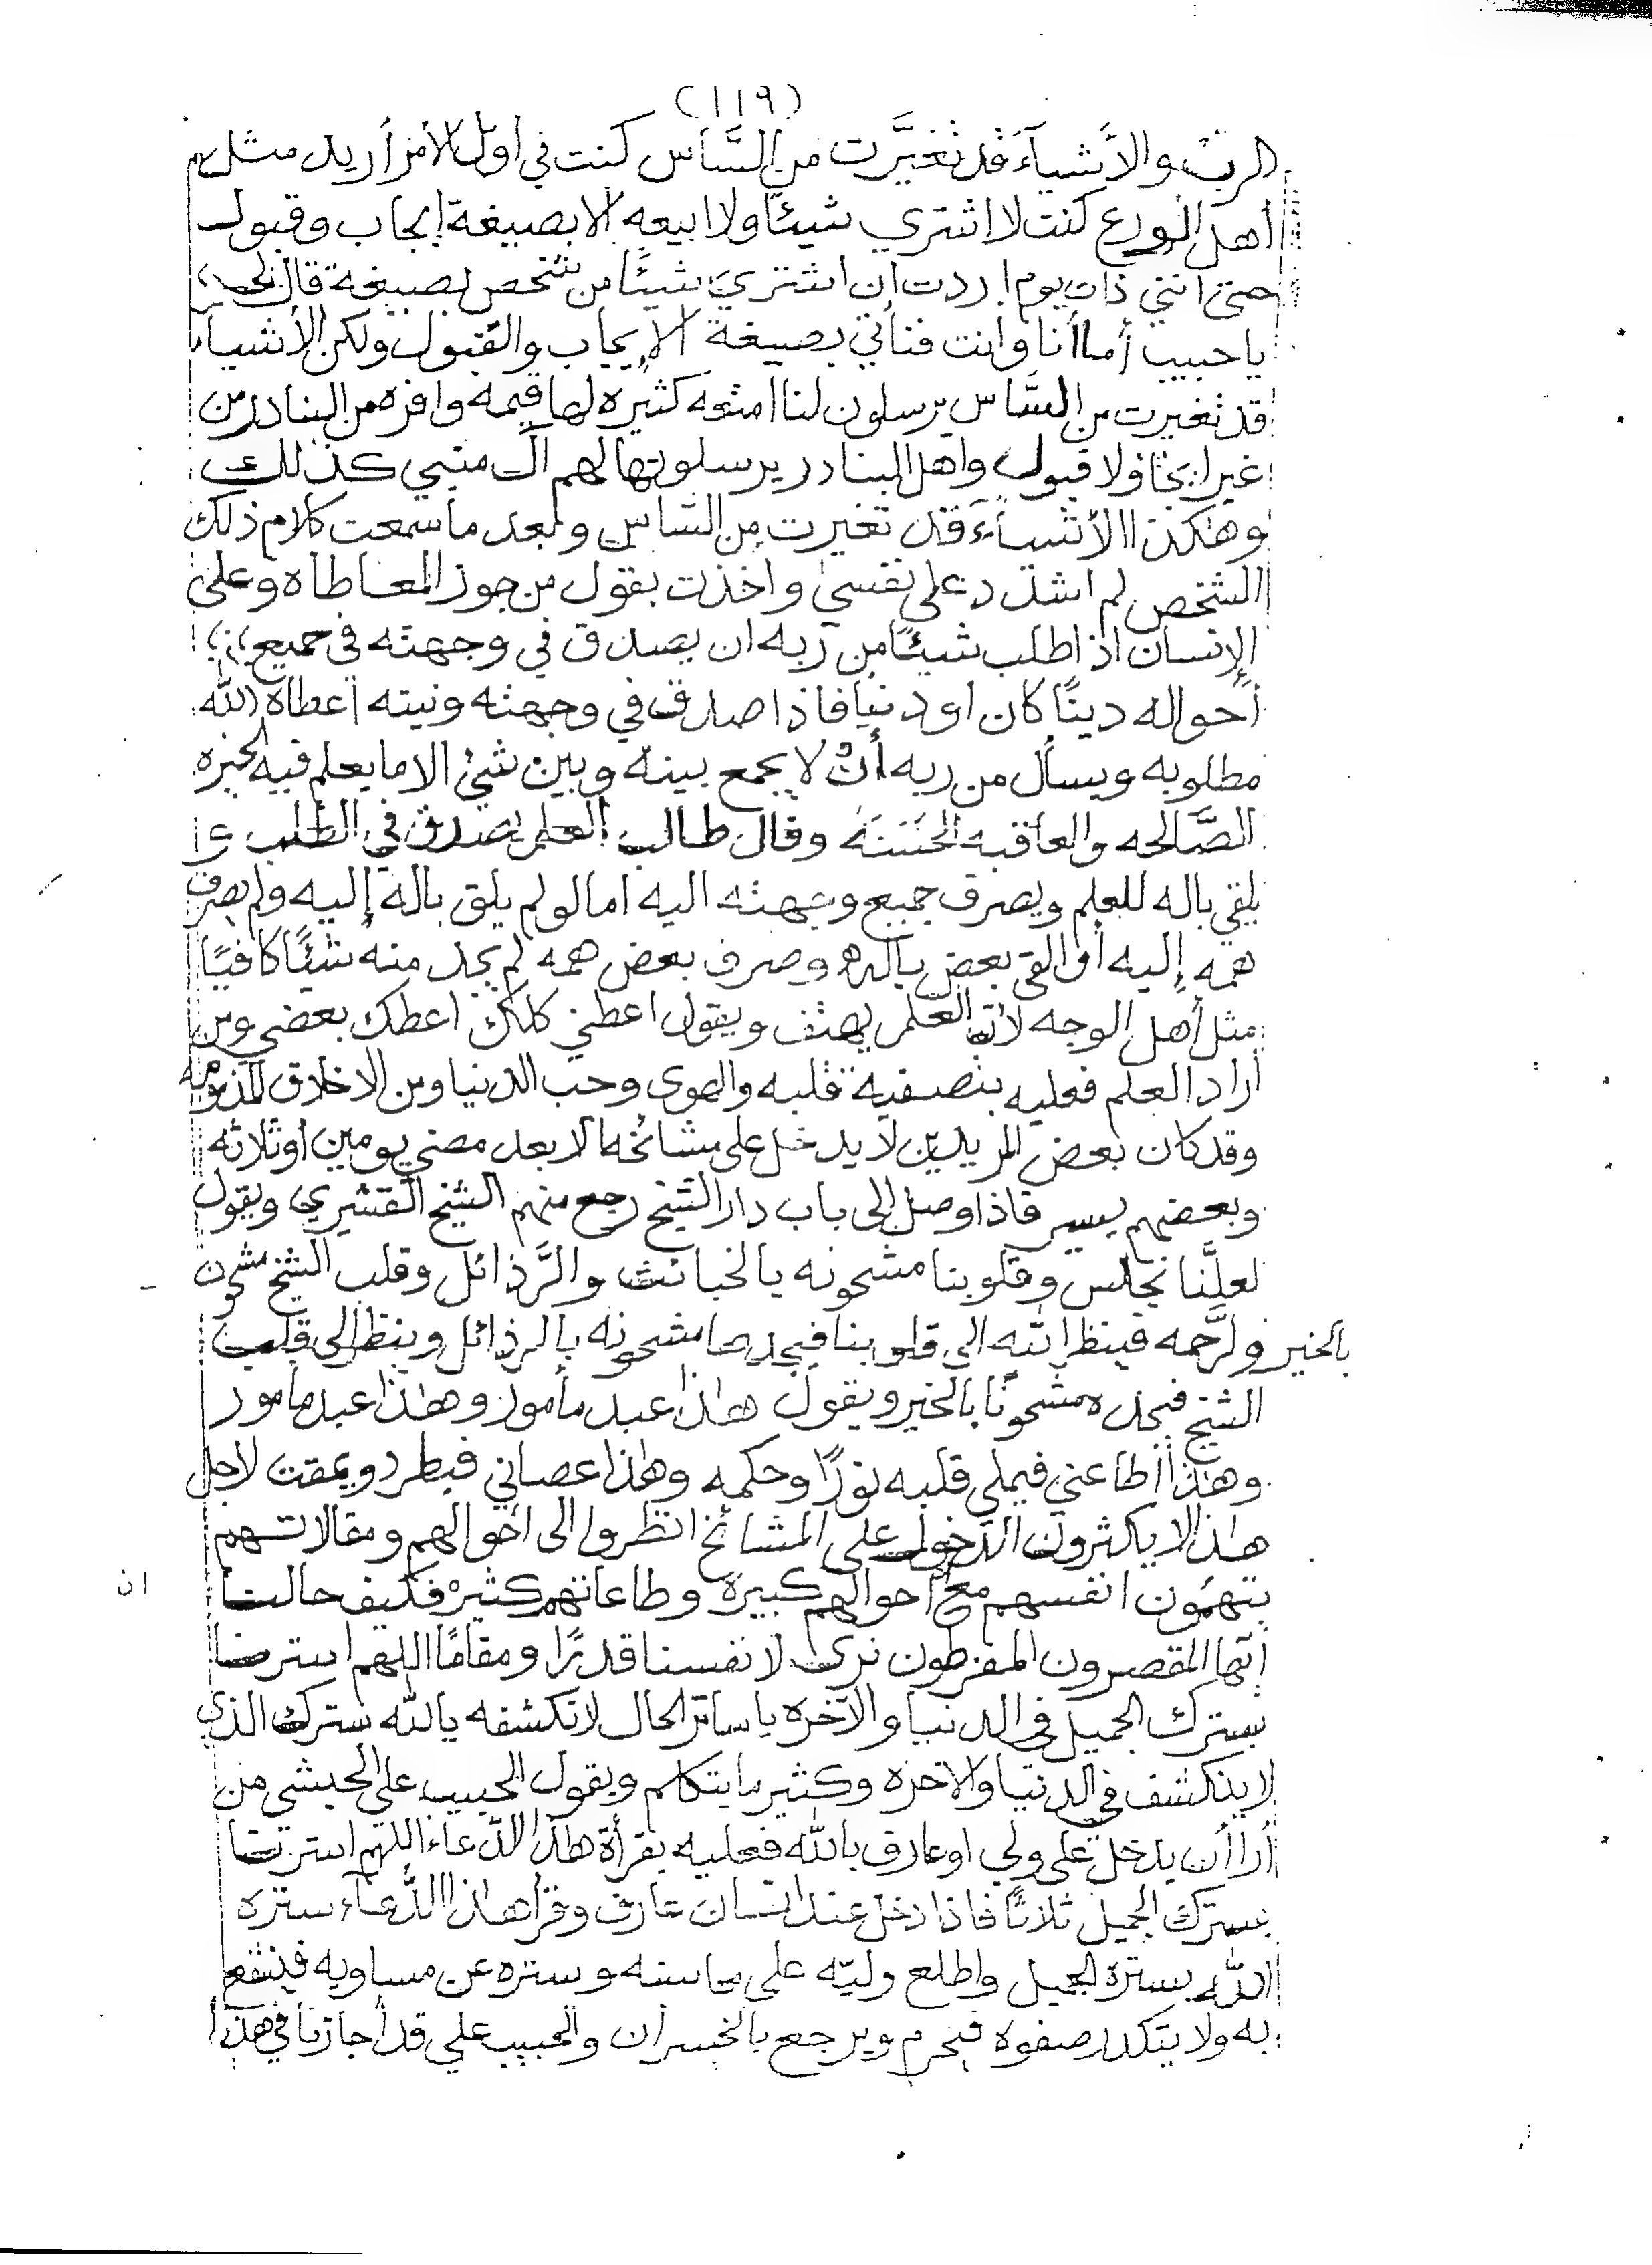 (١١٩)
الرب والأشيآء قد تغيَّرت من السَّأس كنت في أول الأمر أريد مثل
أهل الورع كنت لا اشتري شيئًا ولا ابيعه الا بصيغة إيجاب وقبول
حتى انني ذات يوم اردت ان اشتري شيئًا من شخص بصيغة قال لي
يا حبيب أما أنا وانت فنأتي بصيغة الإيجاب والقبول ولكن الأشيآء
قد تغيرت من السَّاس يرسلون لنا امتعه كثيره لها قيمه وافره من البنادر من
غير ايجاب ولا قبول واهل البنادر يرسلونها لهم ال منبي كذلك
وهكذا الأشيآء قد تغيرت من الساس وبعد ما سمعت كلام ذلك
الشخص لم اشدد على نفسي واخذت بقول من جوز المعاطاه وعلى
الإنسان اذا طلب شيئًا من ربه ان يصدق في وجهته في جميع
أحواله دينًا كان او دنيا فاذا صدق في وجهته ونيته اعطاه الله
مطلوبه ويسأل من ربه أنْ لا يجمع بينه وبين شئ الا ما يعلم فيه الخيره
الصَّالحه والعاقبه الحَسَنَة وقال طالب العلم يصدق في الطلب و
يلقي باله للعلم ويصرف جميع وجهته اليه اما لو لم يلق باله إليه ولم يصرف
همه إليه أو القى بعض باله وصرف بعض همه لم يجد منه شيئًا كافيًا
مثل أهل الوجه لأن العلم يهتف ويقول اعطني كلك اعطك بعضي ومن
أراد العلم فعليه بتصفية قلبه والهوى وحب الدنيا ومن الاخلاق المذمومه
وقد كان بعض المريدين لا يدخل على مشائخه الا بعد مضي يومين أو ثلاثه
وبعضهم يسير فاذا وصل إلى باب دار الشيخ رجع منهم الشيخ القشيري ويقول
لعلَّنا نجلس وقلوبنا مشحونه بالخبائث والرَّذائل وقلب الشيخ مشحون
بالخير والرَّحمه فينظر الله الى قلوبنا فيجدها مشحونه بالرذائل وينظر إلى قلب
الشيخ فيجده مشحونًا بالخير ويقول هاذا عبد مأمور وهاذا عبد مامور
وهاذا أطاعني فيملي قلبه نورًا وحكمه وهاذا عصاني فيطرد ويمقت لاجل
هاذا لا يكثرون الدخول على المشائخ انظروا الى احوالهم ومقالاتهم
يتهمون انفسهم مع أحوالهم كبيرة وطاعاتهم كثيرْ فكيف حالنا
أيها المقصرون المفرطون نرى لانفسنا قدرًا ومقامًا اللهم استرنا
بسترك الجميل في الدنيا والآخره يا ساتر الحال لا تكشفه يالله سترك الذي
لا ينكشف في الدنيا والاخره وكثير ما يتكلم ويقول الحبيب علي الحبشي من
أرا أن يدخل على ولي او عارف بالله فعليه بقرأة هاذا الدّعاء اللهم استرنا
بسترك الجميل ثلاثًا فاذا دخل عند انسان عارف وقرأ هاذا الدُّعاء ستره
الله بستره الجميل واطلع وليّه على محاسنه وستره عن مساويه فينتفع
به ولا يتكدر صفوه فيحرم ويرجع بالخسران والحبيب علي قد أجازنا في هذا
ان